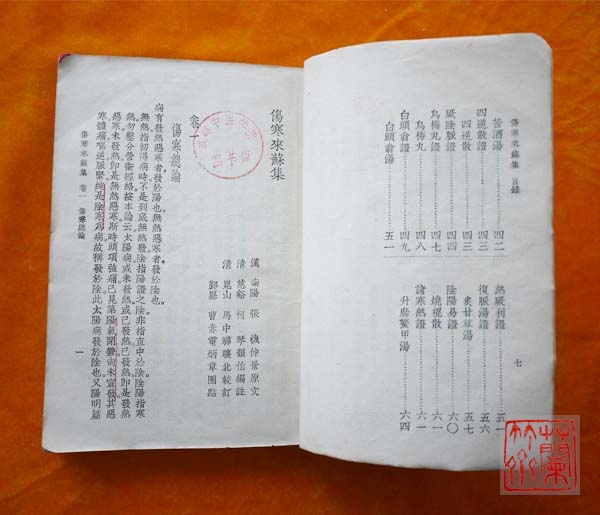 傷寒來蘇集 目錄
苦酒湯……四二
四逆散證……四三
四逆散……四三
厥陰脈證……四四
烏梅丸證……四七
烏梅丸……四八
白頭翁證……四九
白頭翁湯……五一
熱厥利證……五一
復脈湯證……五六
炙甘草湯……五七
陰陽易證……六〇
燒裩散……六一
諸寒熱證……六一
升麻鱉甲湯……六四
七
傷寒來蘇集
漢 南陽 張 機仲景原文
清 慈谿 柯 琴韻伯編註
清 崑山 馬中驊驤北較訂
鄞縣 曹赤電炳章圈點
卷一
傷寒總論
病有發熱惡寒者發於陽也無熱惡寒者發於陰也
無熱指初得病時不是到底無熱發陰指陽證之陰非指直中於陰陰陽指寒
熱勿鑿分營衛經絡按本論云太陽病或未發熱或已發熱已發熱卽是發熱
惡寒未發熱卽是無熱惡寒斯時頭項強痛已見第陽氣閉鬱尚未宣發其惡
寒體痛嘔逆脈緊純是陰寒爲病故稱發於陰此太陽病發於陰也又陽明篇
傷寒來蘇集 卷一 傷寒總論
一